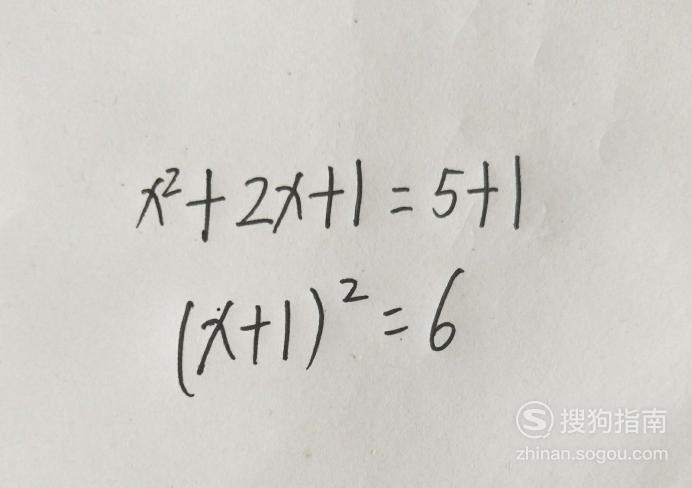 x²+2x+1=5+1
(x+1)²=6
S 搜狗指南
zhinan.sogou.com